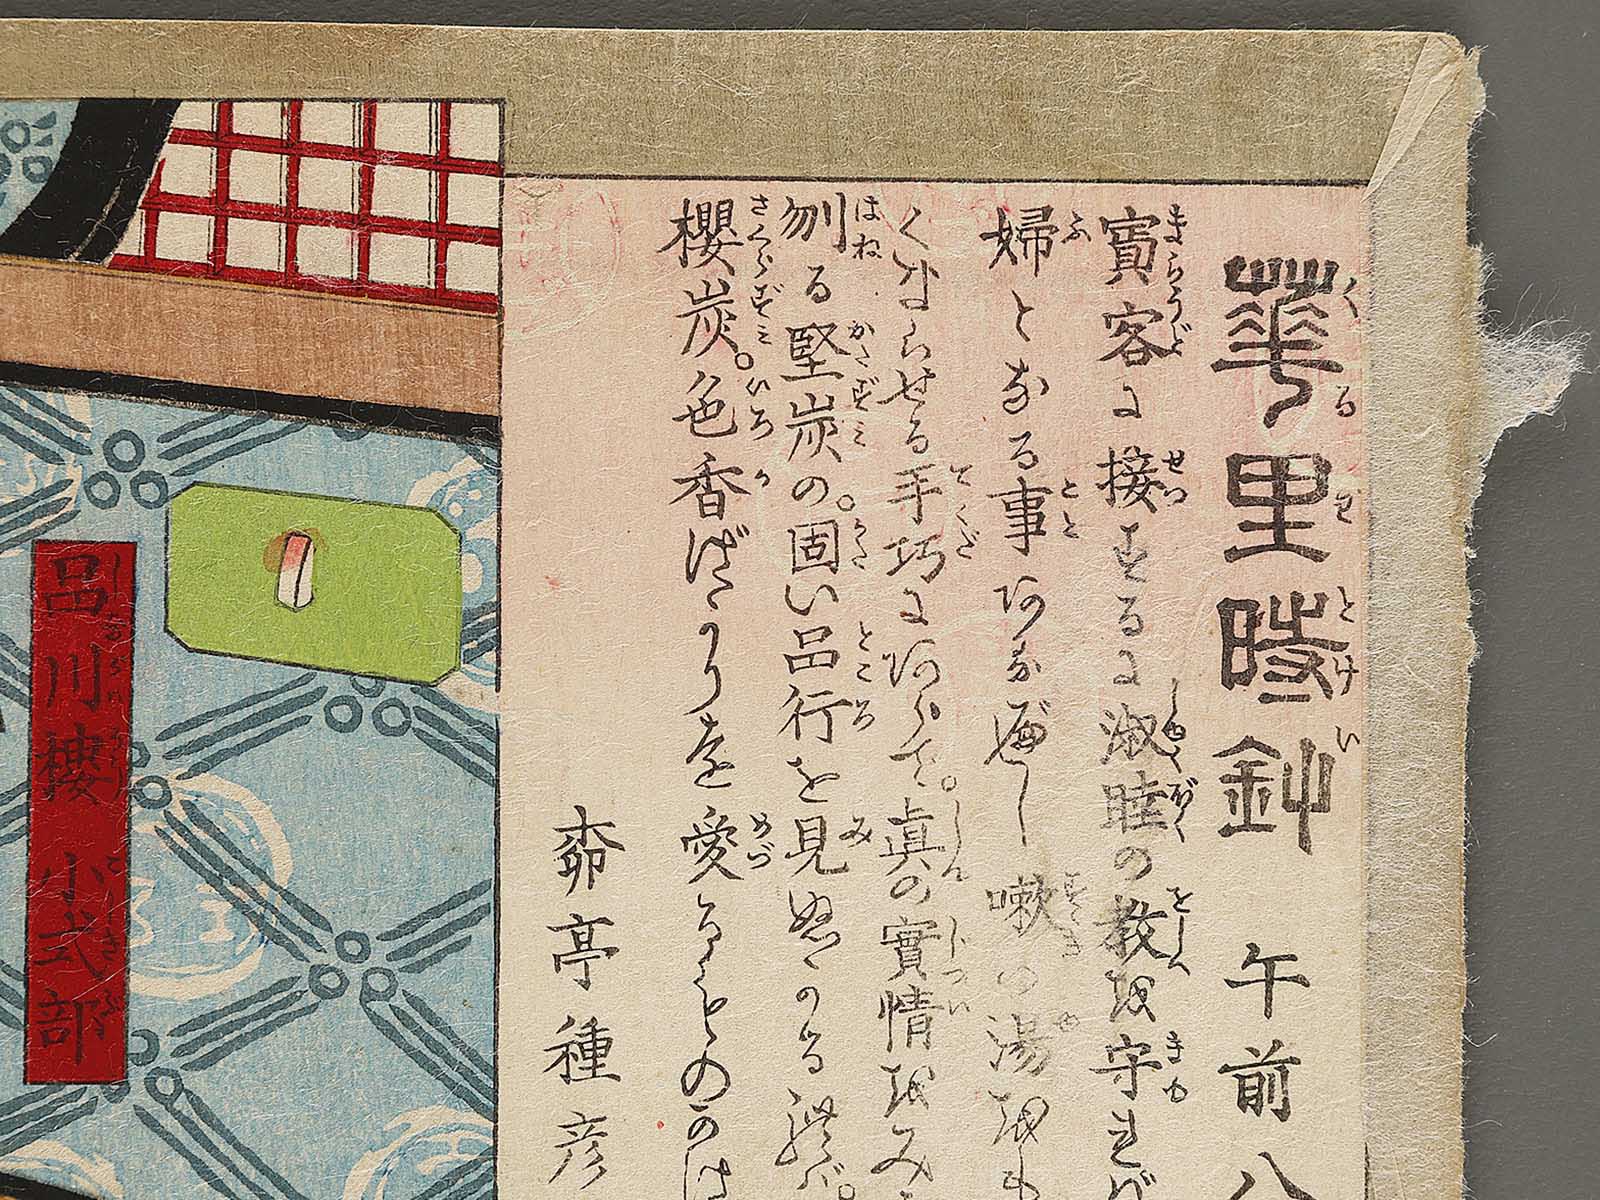 華里時計 午前八
賓客に接するに淑睦の教を守れば
婦となる事ありなずべし 嗽の湯をも
くはらせる手巧にあらで。真の實情をみ
刎る堅炭の。固い品行を見ぬかる禮ば。
櫻炭。色香ばかりを愛るもののかは
柳亭種彦
品川樓 小式部